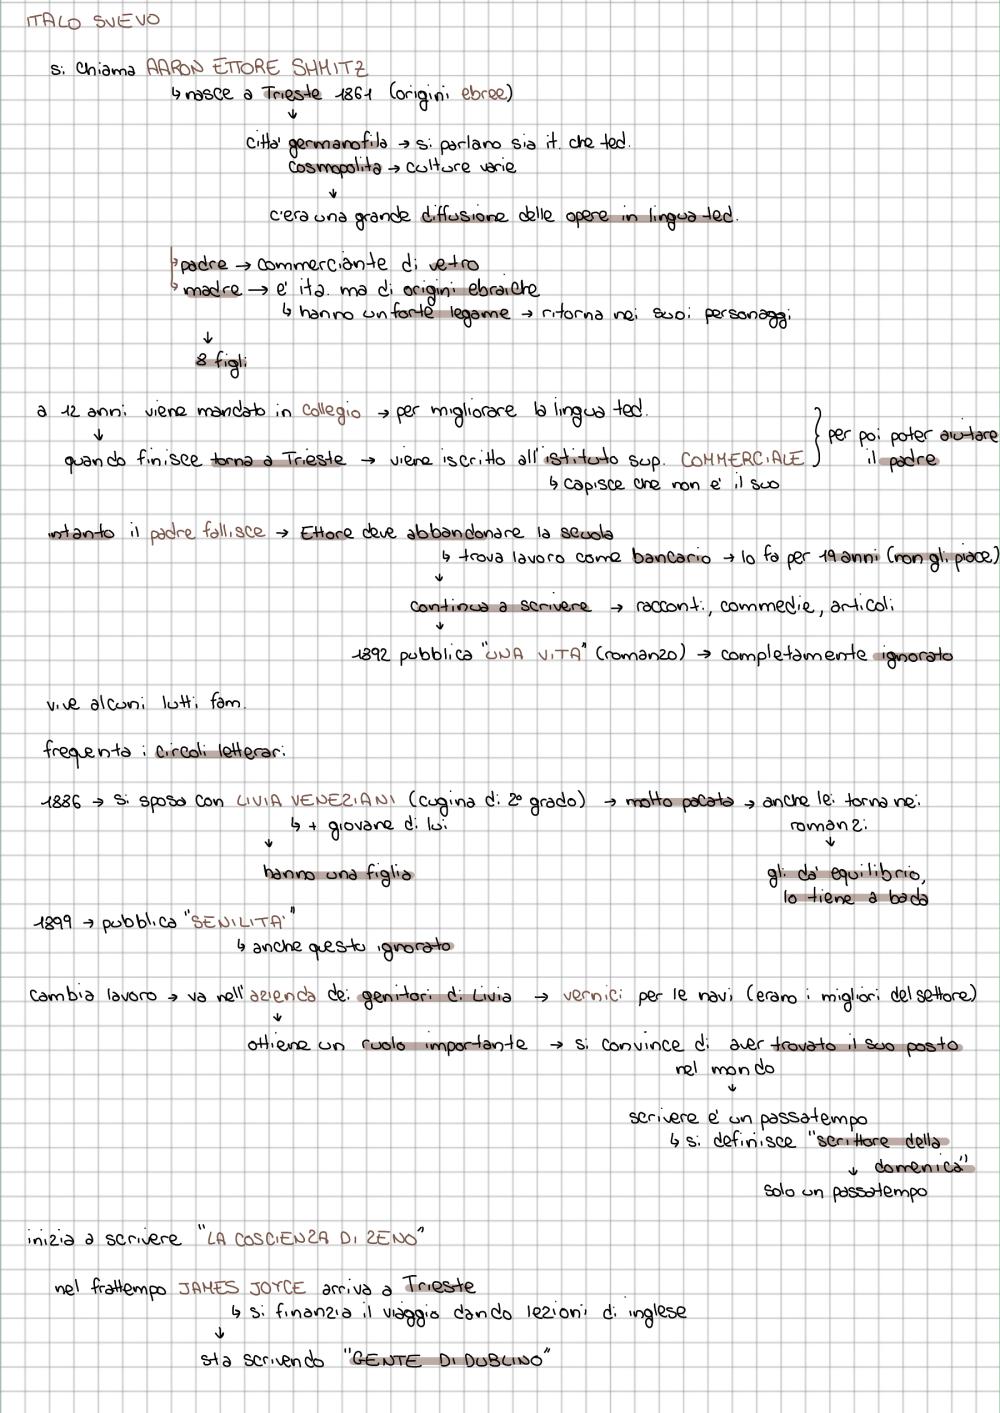 ITALO SVEVO
si chiama AARON ETTORE SHMITZ
↳ nasce a Trieste 1861 (origini ebree)
↓
citta' germanofila → si parlano sia it. che ted.
cosmopolita → culture varie
↓
c'era una grande diffusione delle opere in lingua ted.
↳ padre → commerciante di vetro
↳ madre → e' ita. ma di origini ebraiche
↳ hanno un forte legame → ritorna nei suoi personaggi
↓
8 figli
a 12 anni viene mandato in collegio → per migliorare la lingua ted.
↓
quando finisce torna a Trieste → viene iscritto all'istituto sup. COMMERCIALE } per poi poter aiutare il padre
↳ capisce che non e' il suo
intanto il padre fallisce → Ettore deve abbandonare la scuola
↳ trova lavoro come bancario → lo fa per 19 anni (non gli piace)
↓
continua a scrivere → racconti, commedie, articoli
↓
1892 pubblica "UNA VITA" (romanzo) → completamente ignorato
vive alcuni lutti fam.
frequenta i circoli letterari
1886 → si sposa con LIVIA VENEZIANI (cugina di 2° grado) → molto pacata → anche lei torna nei
↳ + giovane di lui
romanzi
↓
↓
hanno una figlia
gli da' equilibrio,
lo tiene a bada
1899 → pubblica "SENILITA'"
↳ anche questo ignorato
cambia lavoro → va nell'azienda dei genitori di Livia → vernici per le navi (erano i migliori del settore)
↓
ottiene un ruolo importante → si convince di aver trovato il suo posto
nel mondo
↓
scrivere e' un passatempo
↳ si definisce "scrittore della
↓ domenica"
solo un passatempo
inizia a scrivere "LA COSCIENZA DI ZENO"
nel frattempo JAMES JOYCE arriva a Trieste
↳ si finanzia il viaggio dando lezioni di inglese
↓
sta scrivendo "GENTE DI DUBLINO"